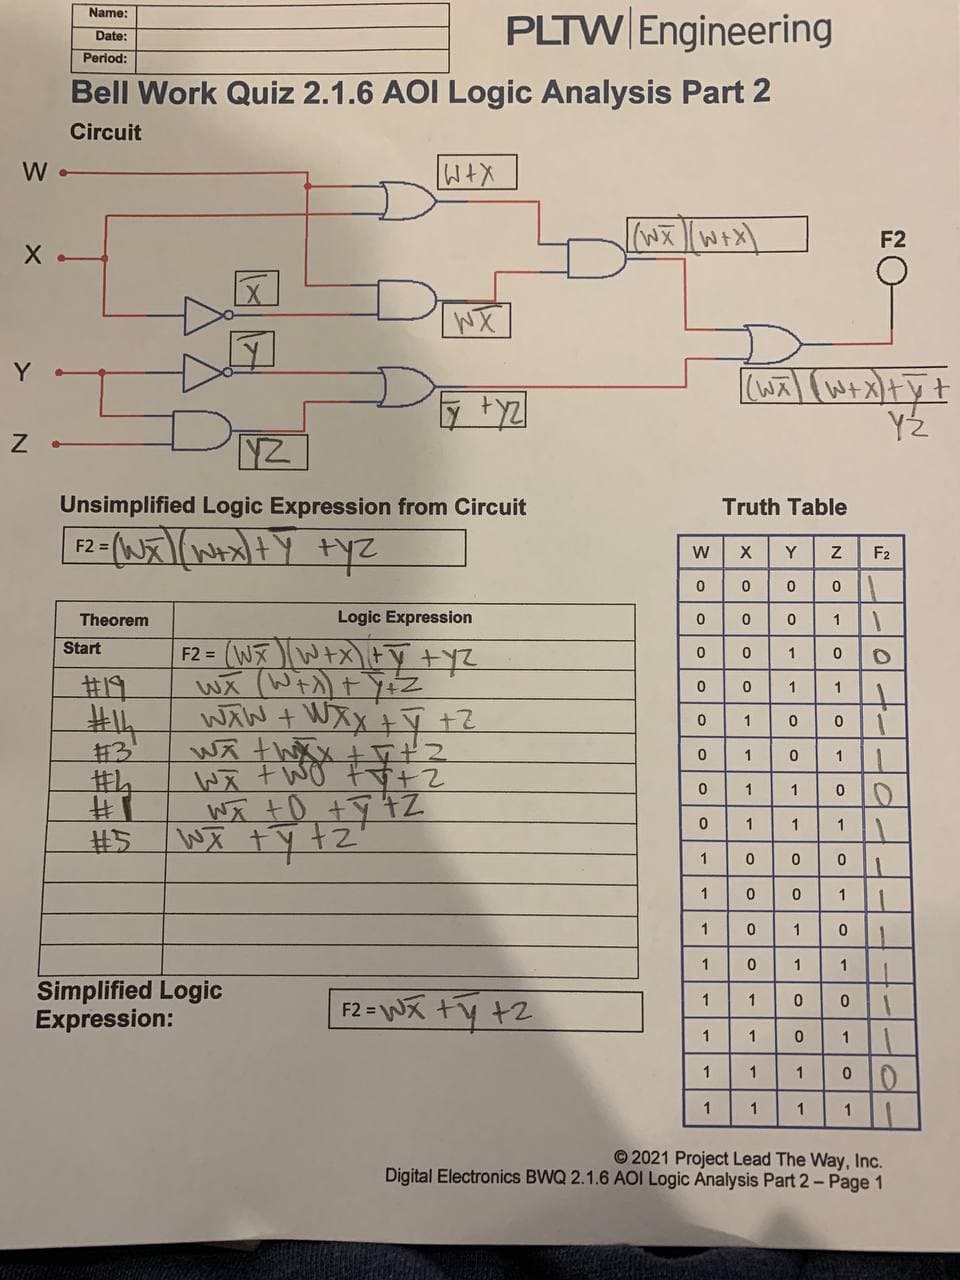 Name:
Date:
Period:
PLTW Engineering
Bell Work Quiz 2.1.6 AOI Logic Analysis Part 2
Circuit
W
W+X
(WX̅)(W+X)
F2
X
X̅
WX̅
Y̅
Y
(WX̅)(W+X)+Y̅+
YZ
Y̅ +YZ
Z
YZ
Unsimplified Logic Expression from Circuit
F2 = (WX̅)(W+X)+Y̅ +YZ
Theorem Logic Expression
Start F2 = (WX̅)(W+X)+Y̅ +YZ
#19 WX̅ (W+X)+Y̅+Z
#14 WX̅W + WX̅X +Y̅ +Z
#3 WX̅ +WX̅X +Y̅+Z
#4 WX̅ +W0 +Y̅+Z
#1 WX̅ +0 +Y̅+Z
#5 WX̅ +Y̅ +Z
Simplified Logic
Expression:
F2 = WX̅ +Y̅ +Z
Truth Table
W X Y Z F2
0 0 0 0 1
0 0 0 1 1
0 0 1 0 0
0 0 1 1 1
0 1 0 0 1
0 1 0 1 1
0 1 1 0 0
0 1 1 1 1
1 0 0 0 1
1 0 0 1 1
1 0 1 0 1
1 0 1 1 1
1 1 0 0 1
1 1 0 1 1
1 1 1 0 0
1 1 1 1 1
© 2021 Project Lead The Way, Inc.
Digital Electronics BWQ 2.1.6 AOI Logic Analysis Part 2 – Page 1